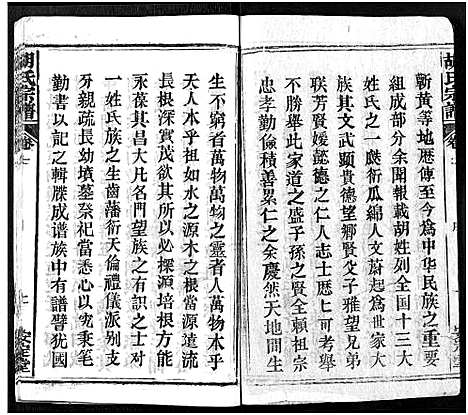 蘄黃等地歷傳至今為中华民族之重要
組成部分余閱報載胡姓列全国十三大
姓氏之一觀衍瓜綿人文蔚起為世家大
族其文武顕貴德望鄉賢父子雅望兄弟
联芳賢媛懿德之仁人志士歷々可考举
不勝舉此家道之盛實全賴祖宗
忠孝勤倹積善之余慶然天地間生
生不窮者萬物萬物之靈者人萬物本乎
天人本乎祖如水之源木之根水源遠流
長根深實茂欲其所以必探源培根方能
永葆其昌大凡名門望族之有識之士对
一姓氏族之生齒蕃衍天倫禮儀派别支
分親疏長幼墳墓祭祀當悉心以究秉笔
勤書以記之輯牒成谱族中有譜譬犹國
胡氏宗譜
卷
安定堂
胡氏宗譜
卷
序